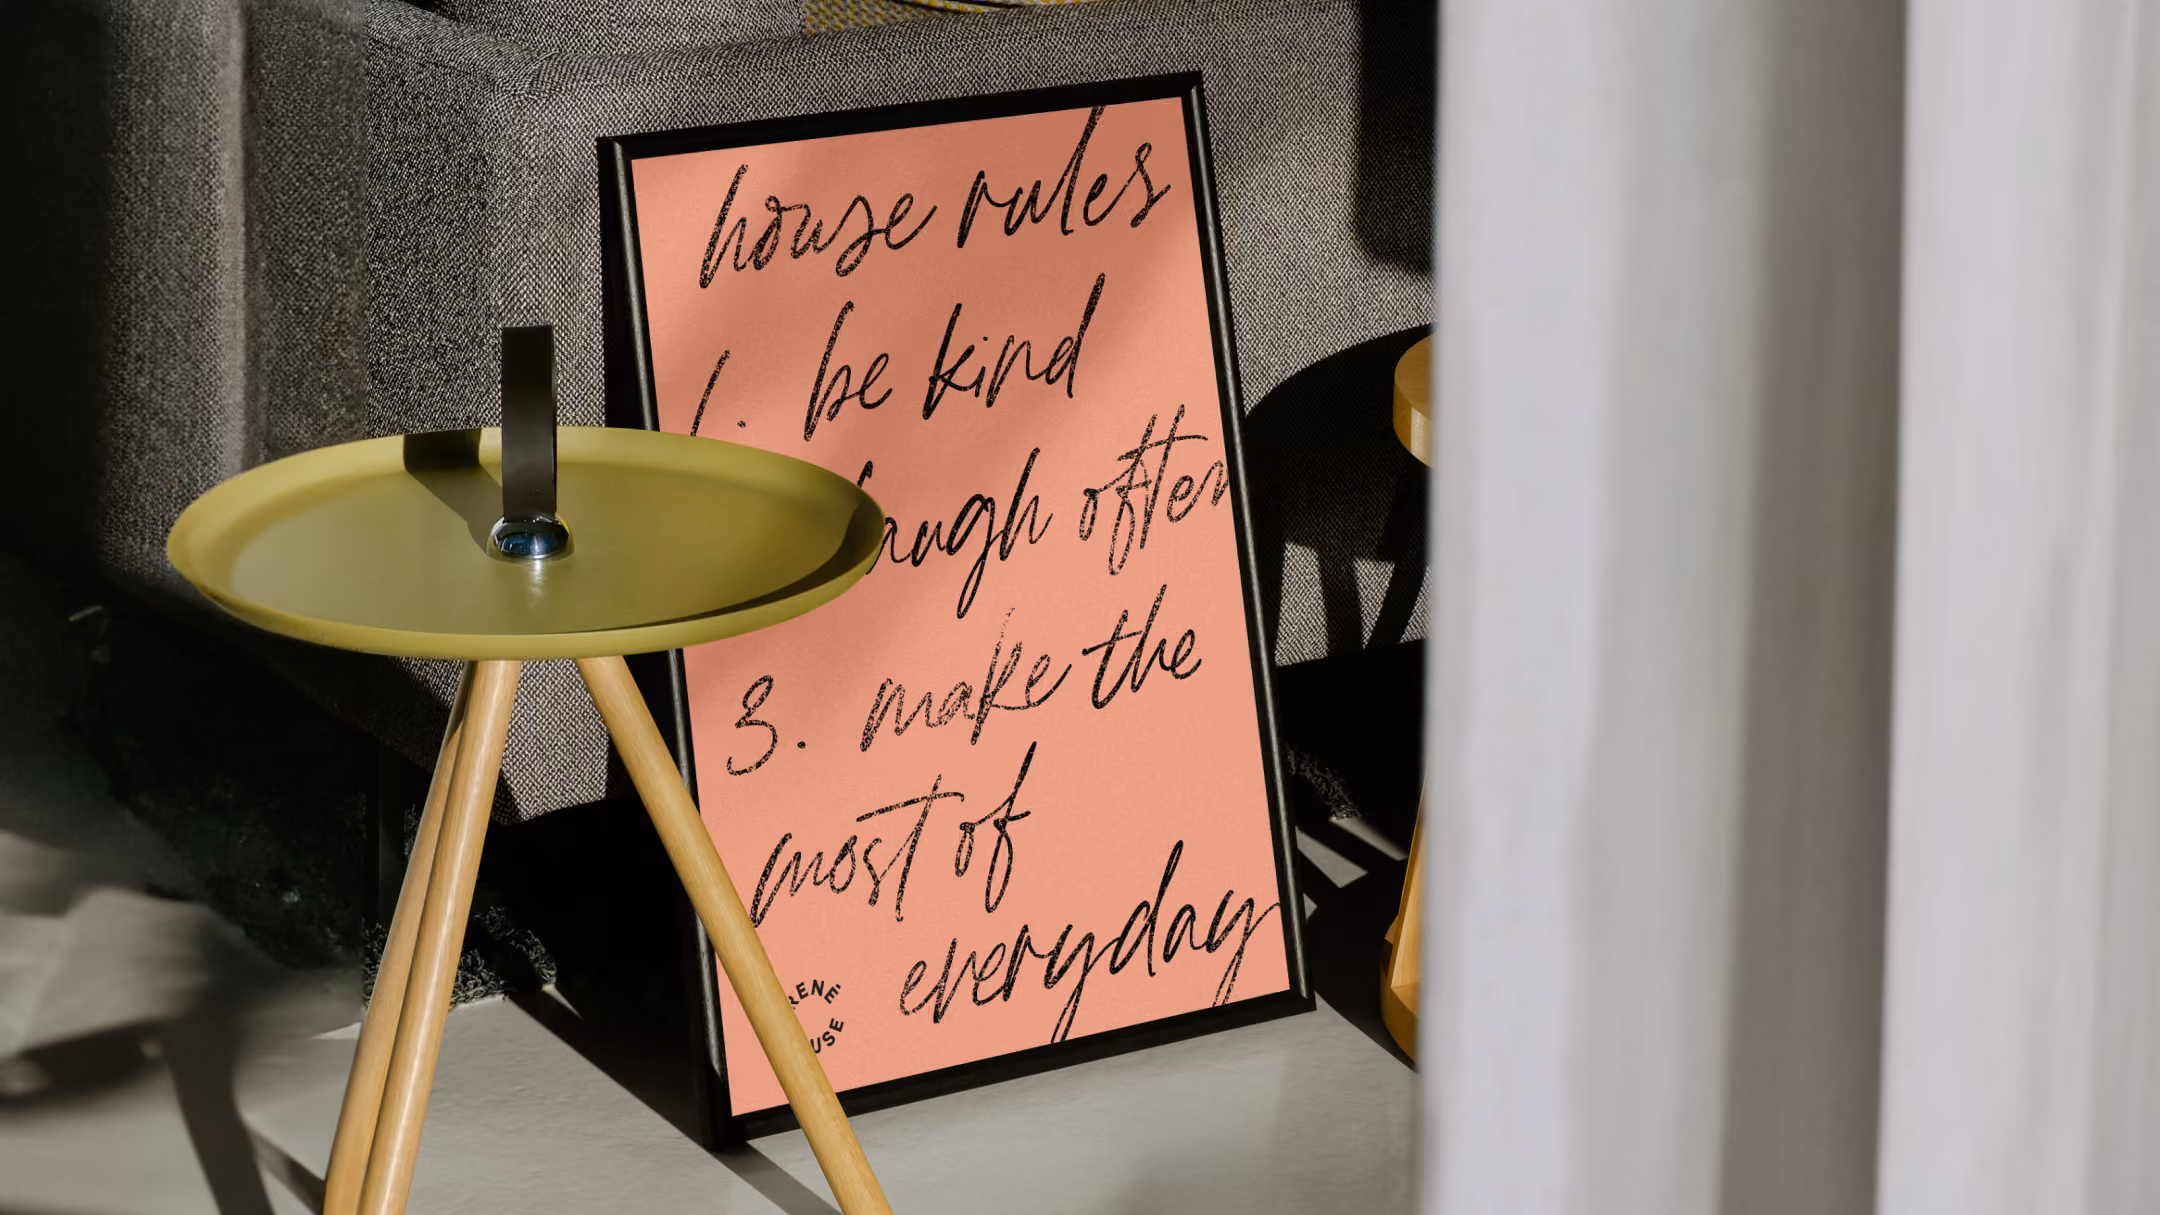 house rules
1. be kind
laugh often
3. make the
most of
everyday